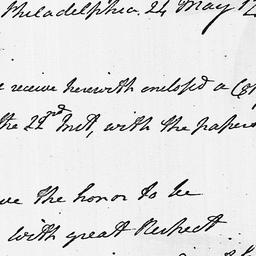 Philadelphia. 24 May 1
receive herewith enclosed a
the 22nd Inst, with the papers
ve the honor to be
with great Respect